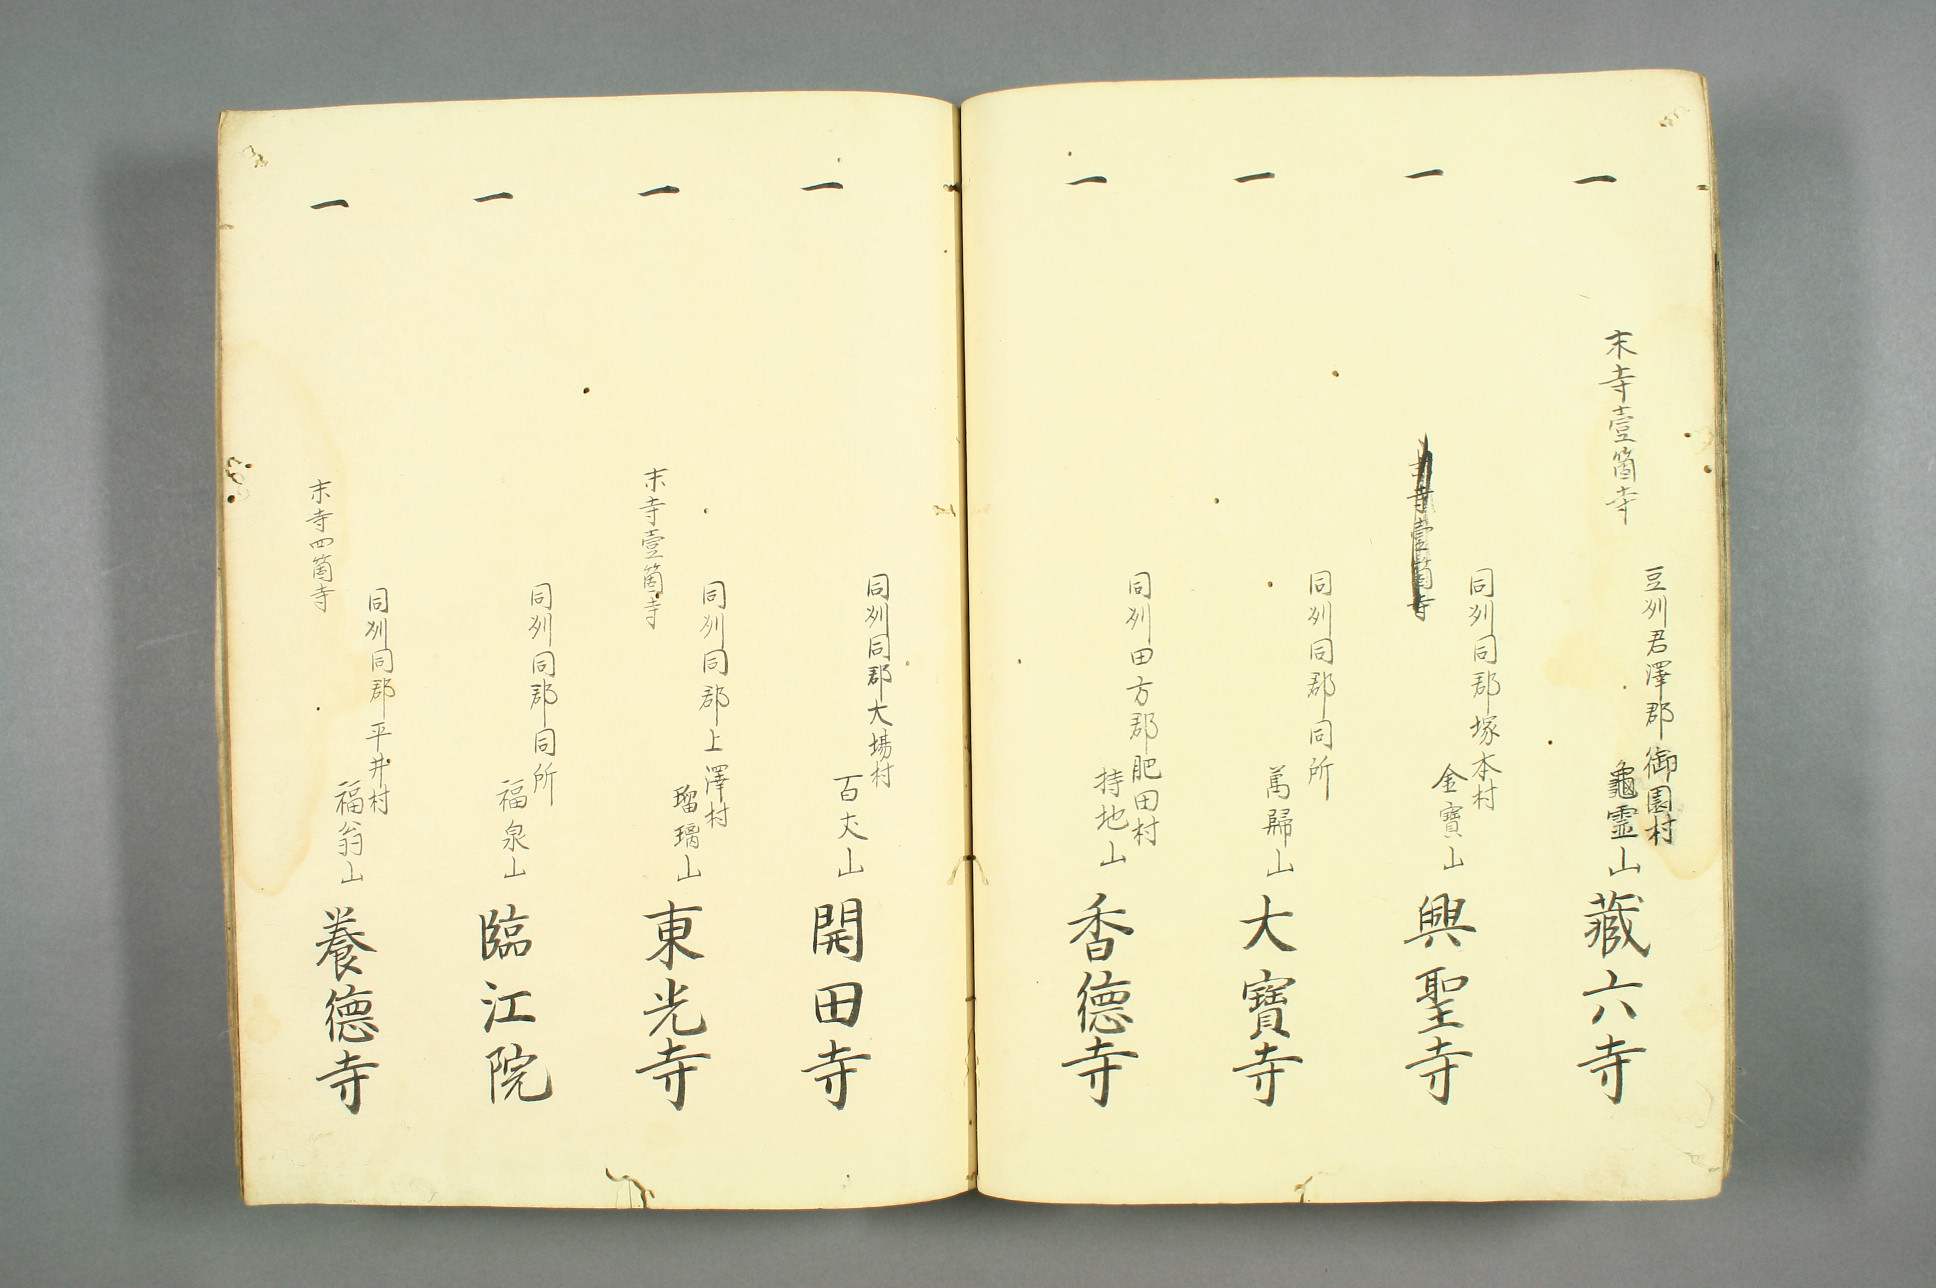 一
末寺壹箇寺
豆州君澤郡御園村
龜霊山
藏六寺
一
末寺壹箇寺
同州同郡塚本村
金寶山
興聖寺
一
同州同郡同所
萬歸山
大寶寺
一
同州田方郡肥田村
持地山
香德寺
一
同州同郡大場村
百丈山
開田寺
一
末寺壹箇寺
同州同郡上澤村
瑠璃山
東光寺
一
同州同郡同所
福泉山
臨江院
一
末寺四箇寺
同州同郡平井村
福翁山
養德寺